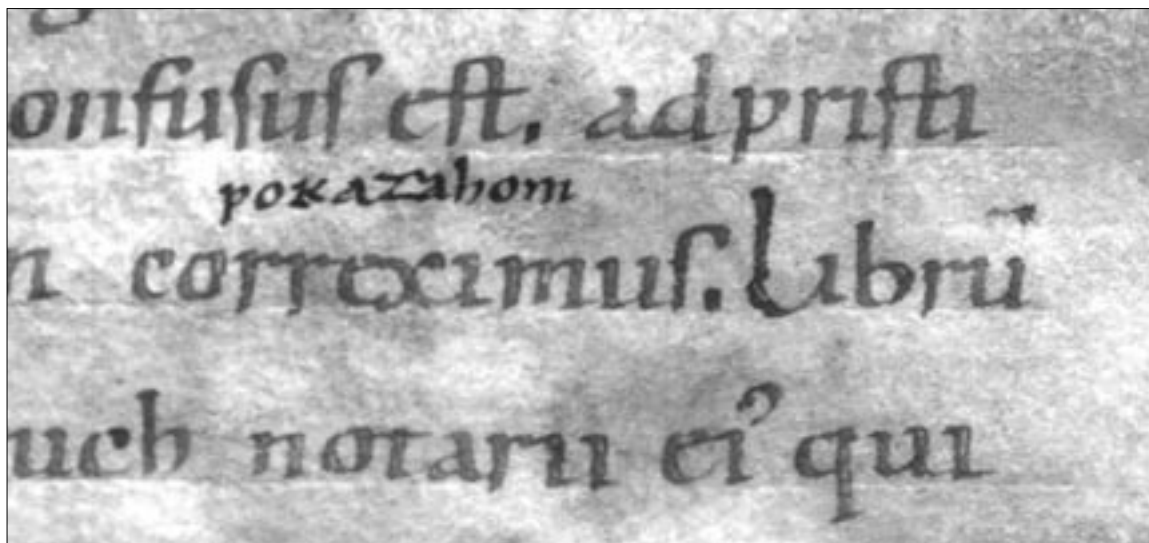 onfusus est. adpristi
pokazahom
n correximus. Librū
uch notarii ei' qui